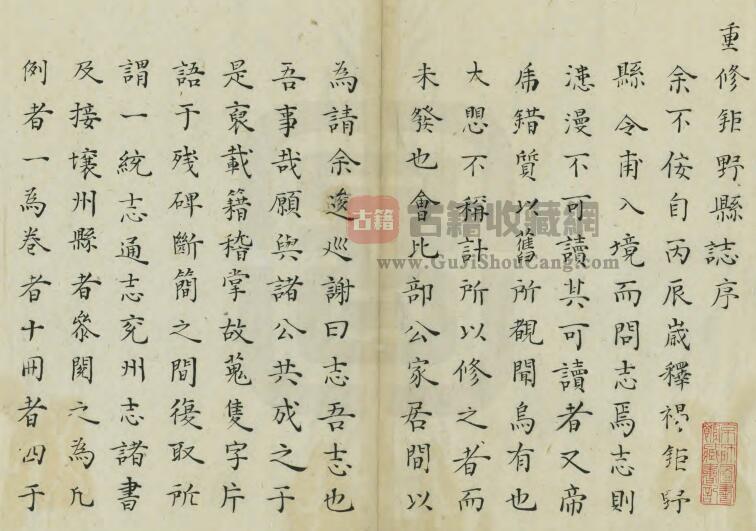 重修鉅野縣誌序
余不佞自丙辰歲釋褐鉅野
縣令甫入境而問志焉志則
漶漫不可讀其可讀者又帝
乕錯質以舊所覩聞烏有也
大思不稱計所以修之者而
未發也會比部公家居間以
為請余逡巡謝曰志吾志也
吾事哉願與諸公共成之于
是裒載籍稽掌故蒐隻字片
語于残碑斷簡之間復取所
謂一統志通志兖州志諸書
及接壤州縣者叅閱之為凡
例者一為卷者十冊者四于
古籍 古籍收藏網
www.GuJiShouCang.com